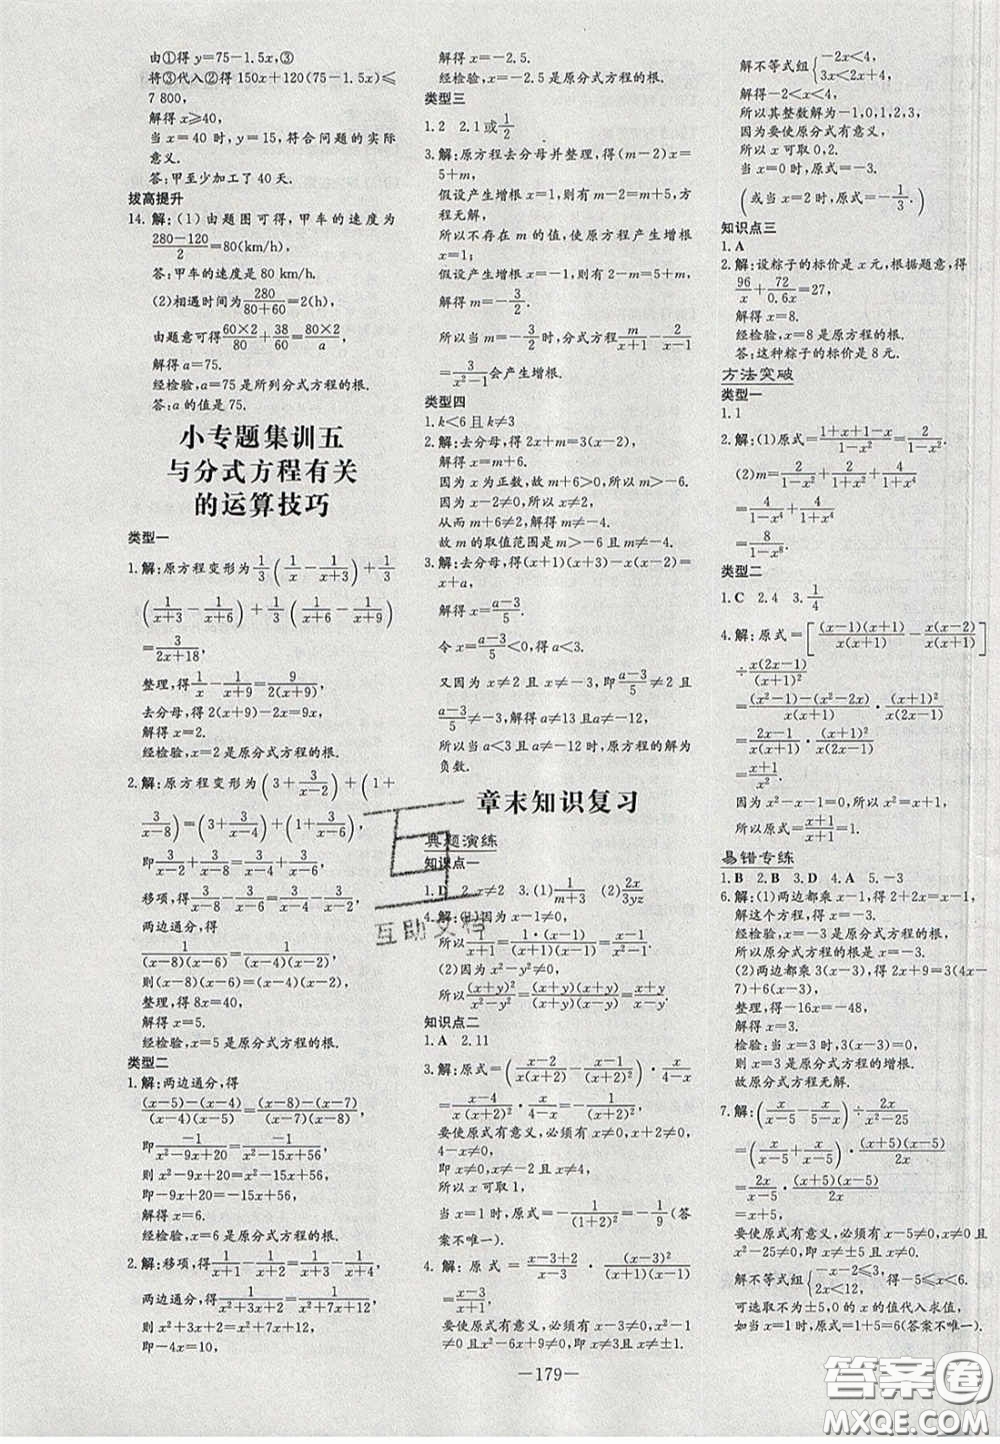 由①得 y=75-1.5x,③
将③代入②得 150x+120(75-1.5x)≤
7 800,
解得 x≥40,
当 x=40 时,y=15,符合问题的实际
意义.
答:甲至少加工了 40 天.
拔高提升
14. 解:(1)由题图可得,甲车的速度为
(280-120)/2=80(km/h),
答:甲车的速度是 80 km/h.
(2)相遇时间为 280/(80+60)=2(h),
由题意可得 (60×2)/80+38/60=(80×2)/a,
解得 a=75.
经检验,a=75 是所列分式方程的根.
答:a 的值是 75.
小专题集训五
与分式方程有关
的运算技巧
类型一
1. 解:原方程变形为 1/3(1/x-1/(x+3))+1/3
(1/(x+3)-1/(x+6))+1/3(1/(x+6)-1/(x+9))
=3/(2x+18),
整理,得 1/x-1/(x+9)=9/(2(x+9)),
去分母,得 2(x+9)-2x=9x,
解得 x=2.
经检验,x=2 是原分式方程的根.
2. 解:原方程变形为(3+3/(x-2))+(1+
3/(x-8))=(3+3/(x-4))+(1+3/(x-6)),
即 3/(x-2)+3/(x-8)=3/(x-4)+3/(x-6),
移项,得 1/(x-8)-1/(x-6)=1/(x-4)-1/(x-2),
两边通分,得
1/((x-8)(x-6))=1/((x-4)(x-2)),
则(x-8)(x-6)=(x-4)(x-2),
整理,得 8x=40,
解得 x=5.
经检验,x=5 是原分式方程的根.
类型二
1. 解:两边通分,得
((x-5)-(x-4))/((x-4)(x-5))=((x-8)-(x-7))/((x-7)(x-8)),
即 -1/(x²-9x+20)=-1/(x²-15x+56),
则 x²-9x+20=x²-15x+56,
即-9x+20=-15x+56,
解得 x=6.
经检验,x=6 是原分式方程的根.
2. 解:移项,得 1/(x+1)-1/(x+2)=1/(x+3)-1/(x+4),
两边通分,得 1/(x²+3x+2)=1/(x²+7x+12),
则 x²+3x+2=x²+7x+12,
即-4x=10,
解得 x=-2.5.
经检验,x=-2.5 是原分式方程的根.
类型三
1. 2 2. 1 或 1/2
3. 解:原方程去分母并整理,得(m-2)x=
5+m,
假设产生增根 x=1,则有 m-2=m+5,
方程无解,
所以不存在 m 的值,使原方程产生增根
x=1;
假设产生增根 x=-1,则有 2-m=5+m,
解得 m=-3/2.
所以当 m=-3/2 时,分式方程 m/(x+1)-2/(x-1)
=3/(x²-1)会产生增根.
类型四
1. k<6 且 k≠3
2. 解:去分母,得 2x+m=3(x-2),
解得 x=m+6.
因为 x 为正数,故 m+6>0,即 m>-6.
因为 x-2≠0,所以 x≠2,
从而 m+6≠2,解得 m≠-4.
故 m 的取值范围是 m>-6 且 m≠-4.
3. 解:去分母,得(x+1)(x-1)-(x-2)²=
x+a,
解得 x=(a-3)/5... 
令 x=(a-3)/5<0,得 a<3.
又因为 x≠2 且 x≠-3,即 (a-3)/5≠2 且
(a-3)/5≠-3,解得 a≠13 且 a≠-12,
所以当 a<3 且 a≠-12 时,原方程的解为
负数.
章末知识复习
典题演练
知识点一
1. D 2. x≠2 3. (1)1/(m+3) (2)2x/(3yz)
4. 解:(1)因为 x-1≠0,
所以 1/(x+1)=(1·(x-1))/((x+1)(x-1))=(x-1)/(x²-1).
(2)因为 x²-y²≠0,
所以 (x+y)²/(x²-y²)=((x+y)(x+y))/((x+y)(x-y))=(x+y)/(x-y).
知识点二
1. A 2. 11
3. 解:原式=((x-2)/(x(x+2))-(x-1)/(x+2)²)·x/(4-x)
=(x-4)/(x(x+2)²)·x/(4-x)=-1/(x+2)².
要使原式有意义,必须有 x≠0,x+2≠0,
4-x≠0,
即 x≠0,x≠-2 且 x≠4.
所以 x 可取 1,
当 x=1 时,原式=-1/(1+2)²=-1/9(答
案不唯一).
4. 解:原式=(x-3+2)/(x-3)·(x-3)²/((x+1)(x-1))
=(x-3)/(x+1).
要使原式有意义,必须有 x-3≠0,x²-1≠
0 且 x²-6x+9≠0,即 x≠3 且 x≠±1.
解不等式组{-2x<4, 3x<2x+4,
解得-2<x<4,
所以其整数解为-1,0,1,2,3,
因为要使原分式有意义,
所以 x 可取 0,2.
当 x=0 时,原式=-3.
(或当 x=2 时,原式=-1/3.)
知识点三
1. A
2. 解:设粽子的标价是 x 元,根据题意,得
96/x+72/0.6x=27,
解得 x=8.
经检验,x=8 是原方程的根.
答:这种粽子的标价是 8 元.
方法突破
类型一
1. 1
2. 解:(1)原式=(1+x+1-x)/((1-x)(1+x))=2/(1-x²).
(2)m=2/(1-x²)+2/(1+x²)+4/(1+x⁴)
=4/(1-x⁴)+4/(1+x⁴)
=8/(1-x⁸).
类型二
1. C 2. 4 3. 1/4
4. 解:原式=[((x-1)(x+1))/(x(x+1))-(x(x-2))/(x(x+1))]
÷(x(2x-1))/(x+1)²
=((x²-1)-(x²-2x))/(x(x+1))·(x+1)²/(x(2x-1))
=(2x-1)/(x(x+1))·(x+1)²/(x(2x-1))
=(x+1)/x².
因为 x²-x-1=0,所以 x²=x+1,
所以原式=(x+1)/(x+1)=1.
易错专练
1. B 2. B 3. D 4. A 5. -3
6. 解:(1)两边都乘 x-1,得 2+2x-2=x-3,
解这个方程,得 x=-3.
经检验,x=-3 是原分式方程的根,
所以原分式方程的根是 x=-3.
(2)两边都乘 3(x-3),得 2x+9=3(4x-
7)+6(x-3),
整理,得-16x=-48,
解得 x=3.
检验:当 x=3 时,3(x-3)=0,
则 x=3 是分式方程的增根.
故原分式方程无解.
7. 解:(x/(x-5)-x/(5-x))÷2x/(x²-25)
=(x/(x-5)+x/(x-5))·((x+5)(x-5))/2x
=2x/(x-5)·((x+5)(x-5))/2x
=x+5,
要使原式有意义,必须有 x-5≠0,x≠0
且 x²-25≠0,即 x≠±5 且 x≠0.
解不等式组{-x-2≤3, 2x≤12,得-5≤x≤6.
可选取不为±5,0 的 x 的值代入求值,
如当 x=1 时,原式=1+5=6(答案不唯一).
互助文档
—179—
答案圈
MXQE.COM